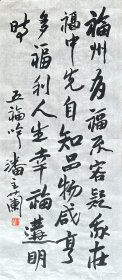 福州有福辰容疑我在
福中先自知品物咸亨
多福利人生幸福讲明
时
五福吟潘主兰